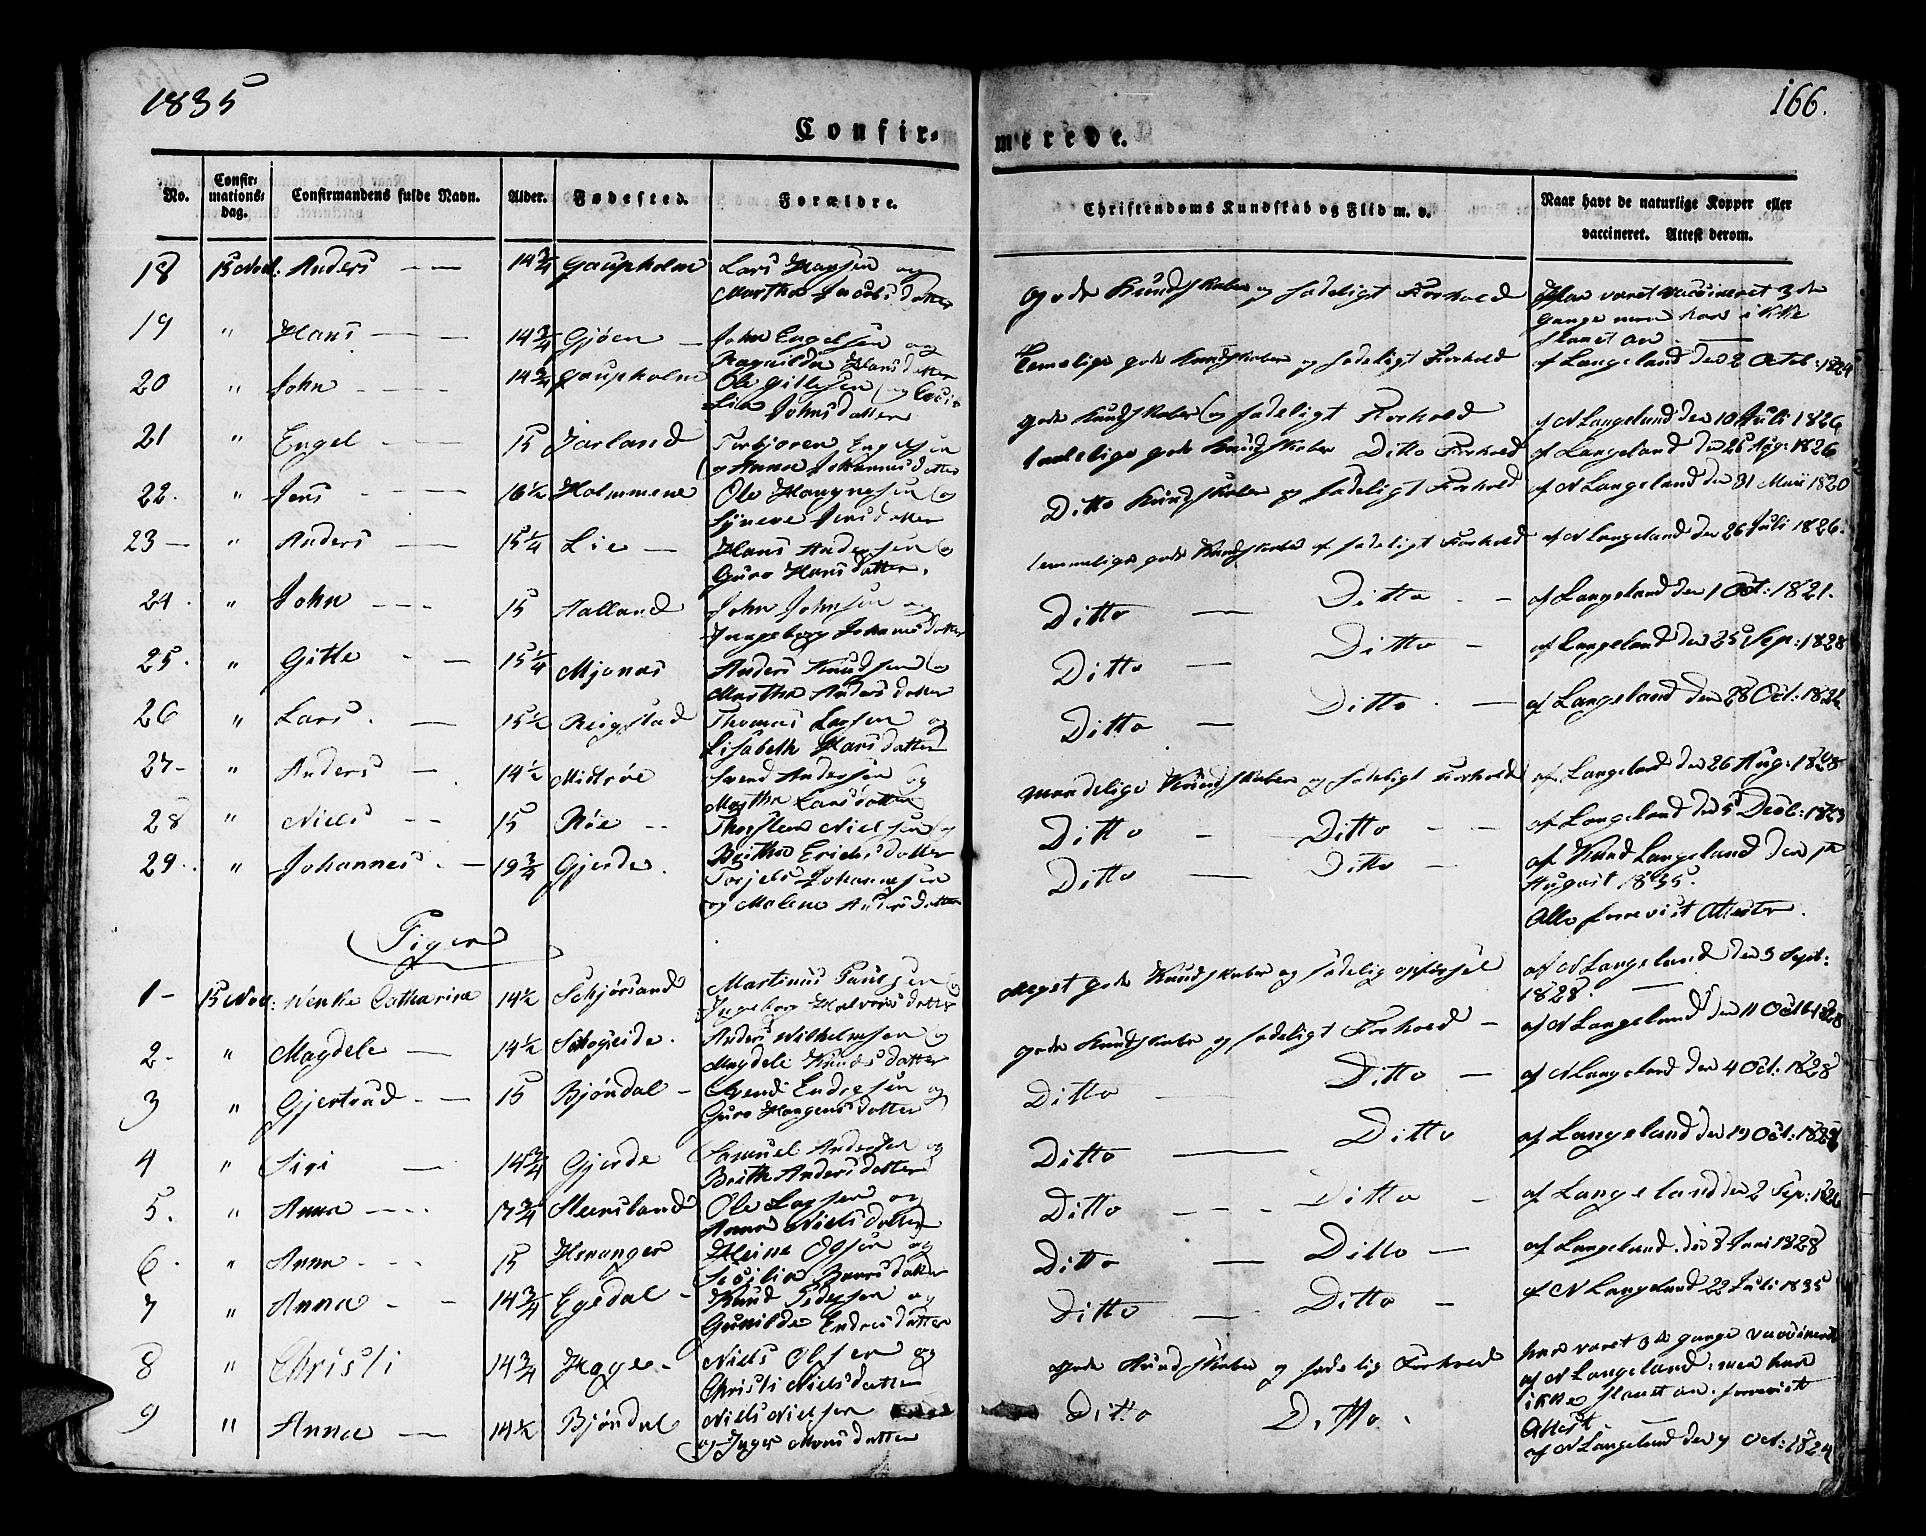 1835
166.
Confir-
merede.
No.
Confirmationsdag.
Confirmandens fulde Navn.
Alder.
Fødested.
Forældre.
Christendoms Kundskab og Flid m. v.
Naar havt de naturlige Kopper eller vaccineret. Attest derom.
18 15 Nov: Anders 14 3/4 Gaupholm Lars Hansen og
Martha Jacobsdatter
gode Kundskaber og sædeligt Forhold Har været vaccineret 3de
Gange men har ikke
slaaet an
19 " Hans 14 3/4 Gjøen John Engelsen og
Ragnilda Hansdatter
Temelige gode Kundskaber og sædeligt Forhold af Langeland den 2 Octob: 1824
20 " John 14 3/4 Gaupholm Ole Gittesen og
Johnsdatter
gode Kundskaber og sædeligt Forhold af N Langeland den 10 Juli 1826
21 " Engel 15 Jarland Torbjøren Engelsen
og Anna Johannesdatter
temelige gode Kundskaber Ditto Forhold af Langeland den 25 Aug: 1826
22. " Jens 16 1/2 Holmmene Ole Haagnesen og
Syneve Jensdatter
Ditto Kundskaber og sædeligt Forhold af N Langeland den 31 Maii 1820
23 " Anders 15 1/4 Lie Hans Andersen og
Guro Hansdatter.
temmelige gode Kundskaber og sædeligt Forhold af N Langeland den 26 Juli 1826.
24. " John 15 Aalland John Johnsen og
Ingeborg Johannesdatter
Ditto Ditto af Langeland den 1 Oct: 1821.
25. " Gitle 15 1/4 Mjonas Anders Knudsen og
Martha Andersdatter
Ditto Ditto af Langeland den 25 Sep: 1828
26 " Lars. 15 1/2 Reigstad Thomas Larsen og
Lisabeth Larsdatter
Ditto Ditto af Langeland den 28 Oct: 1822
27 " Anders 14 1/2 Midtrøe Svend Andersen og
Martha Larsdatter
maadelige Kundskaber og sædeligt Forhold af Langeland den 26 Aug: 1828
28 " Niels 15 Røe Thorsten Nielsen og
Britha Erichsdatter
Ditto Ditto af Langeland den 5 Decb: 1823
29. " Johannes 19 3/4 Gjerde. Torjels Johannesen
og Malene Andersdatter
Ditto Ditto af Knud Langeland den
August 1835.
Alle foreviist Attester.
Piger
1 15 Nov: Wenke Catharina 14 1/2 Schjørsand Martinus Paulsen og
Ingeborg Halvorsdatter
Meget gode Kundskaber og sædelig opførsel af N Langeland den 3 Sept:
1828.
2. " Magdele 14 1/2 Anders Wilhelmsen og
Magdeli Knudsdatter
gode Kundskaber og sædeligt Forhold af N Langeland den 11 Octob 1828
3 " Gjertrud 15 Bjøndal Svend Endresen og
Guro Haagensdatter
Ditto Ditto af N Langeland den 4 Oct: 1828
4 " Sigi 14 3/4 Gjerde Samuel Andersen og
Brithe Andersdatter
Ditto Ditto af Langeland den 19 Oct:
5. " Anna 17 3/4 Steensland Ole Larsen og
Anna Nielsdatter
Ditto Ditto af Langeland den 2 Sep:
6. " Anna 15 Hsvanger Heine Olsen og
Sesilia Baarsdatter
Ditto Ditto af Langeland. den 8 Juni 1828
7 " Anna 14 3/4 Egedal Knud Pedersen og
Gunilde Endresdatter
Ditto Ditto af N Langeland 22 Juli 1835
8 " Christi 14 3/4 Hage Niels Olsen og
Christi Nielsdatter
gode Kundskaber og sædelig Forhold har været gange vaccineret
af N Langeland: men har
ikke slaaet an. foreviist
Attest
9 " Anna 14 1/2 Bjøndal Niels Nielsen
og Inger Monsdatter
Ditto Ditto. af N Langeland den 7 Oct: 1824